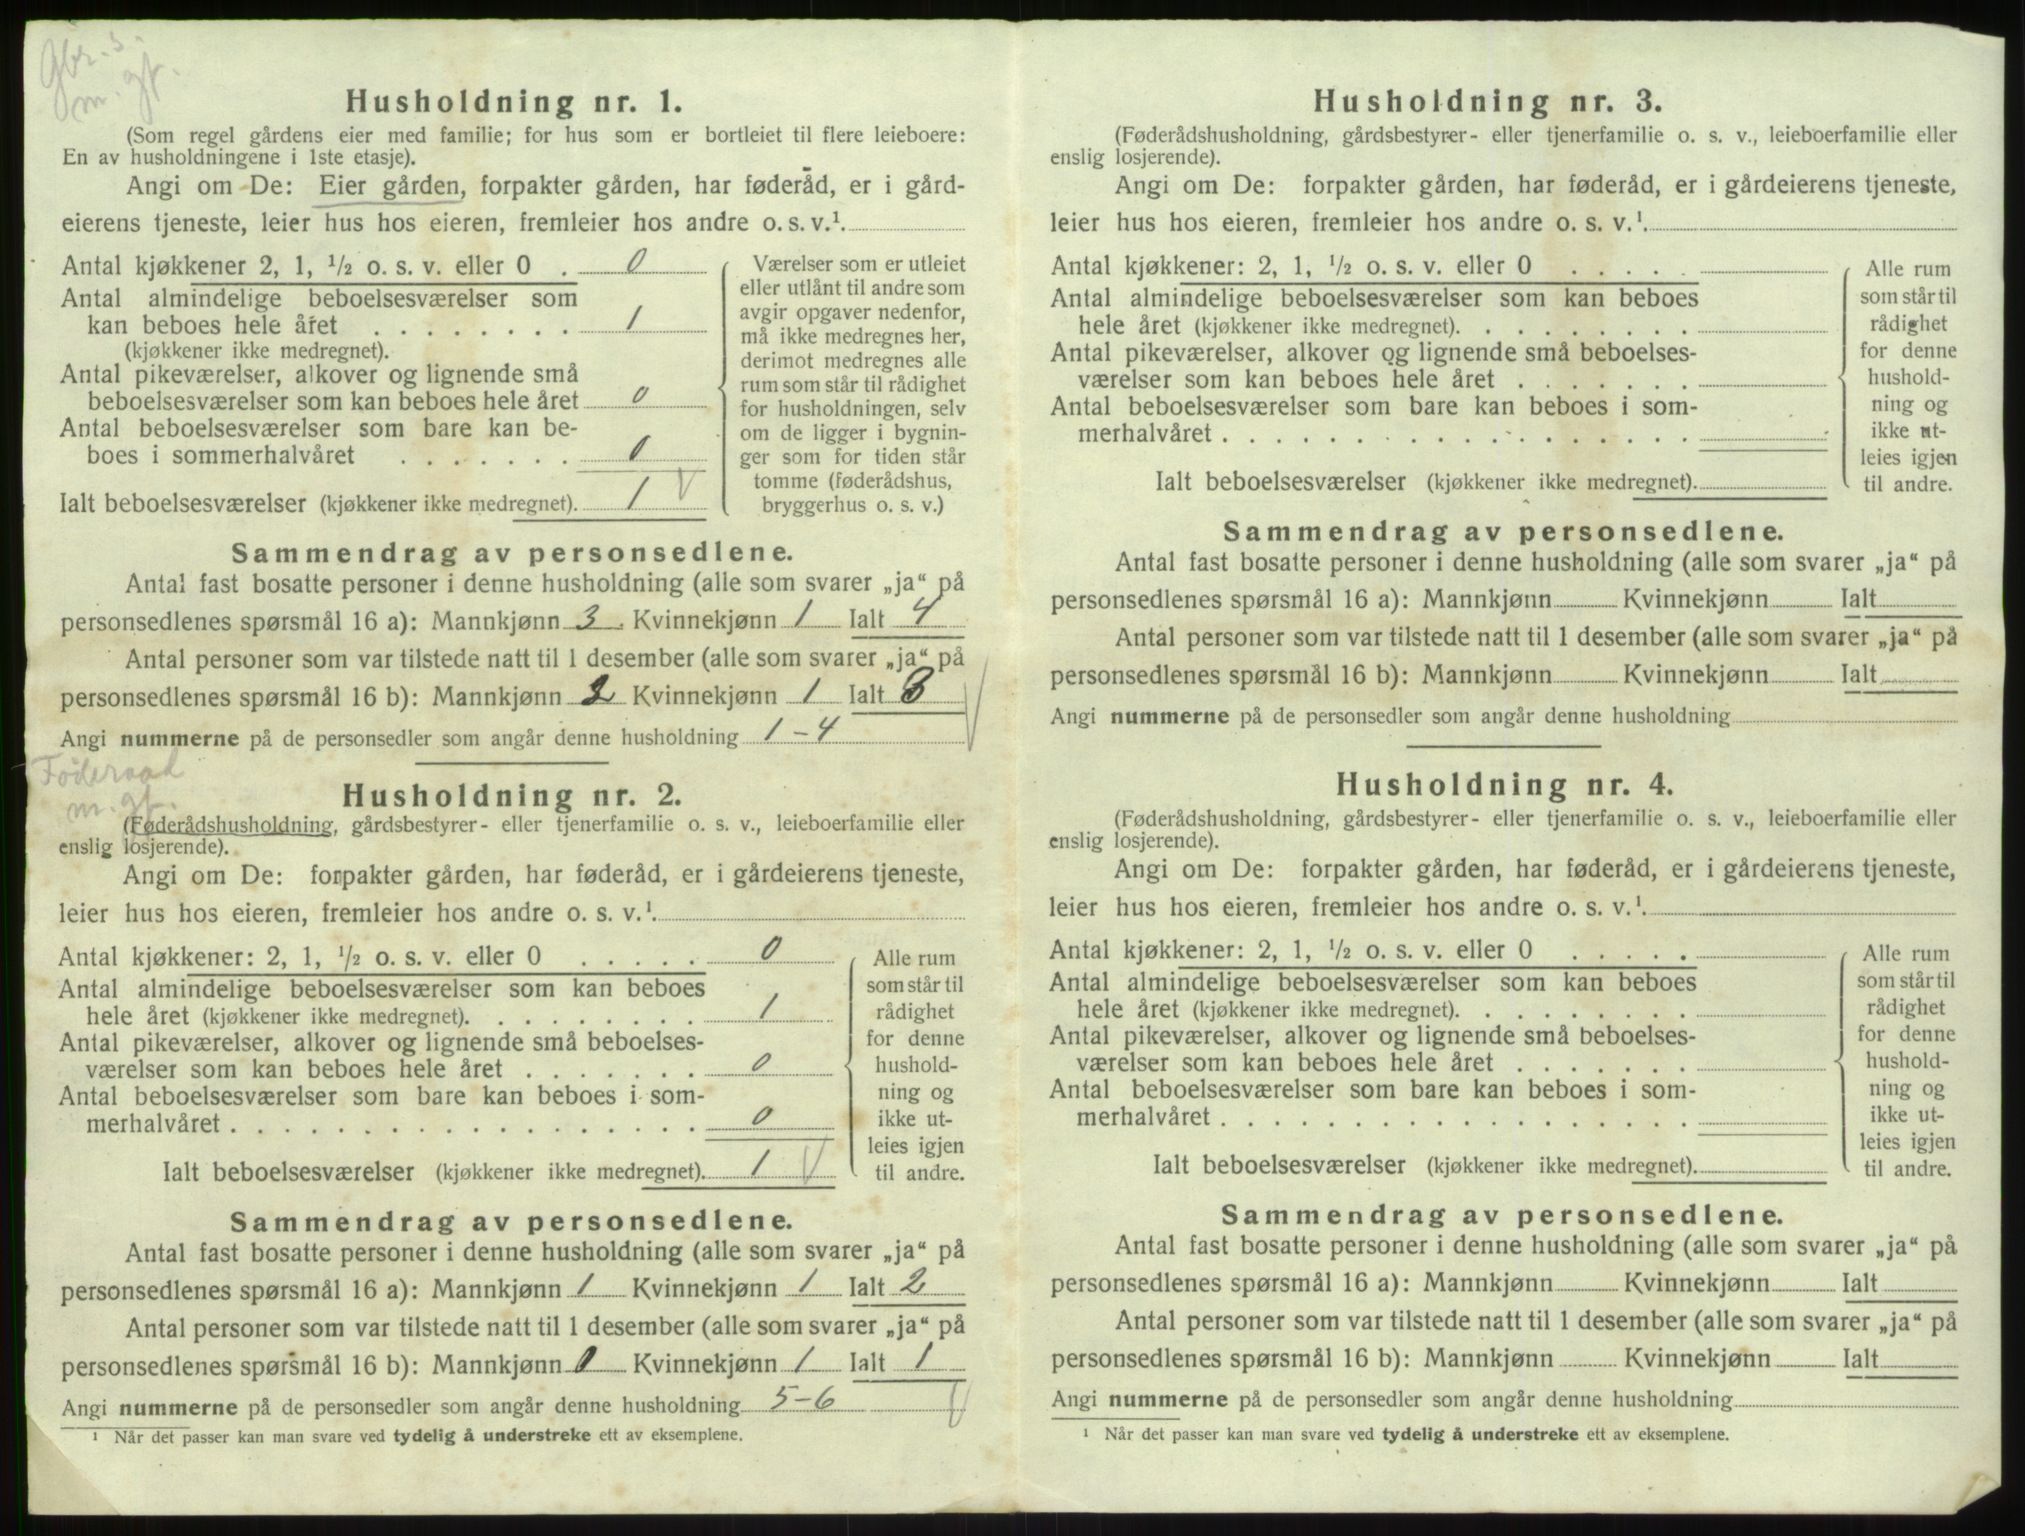 Gbr. s.
m. gf.
Husholdning nr. 1.
(Som regel gårdens eier med familie; for hus som er bortleiet til flere leieboere:
En av husholdningene i 1ste etasje).
Angi om De: Eier gården, forpakter gården, har føderåd, er i gård-
eierens tjeneste, leier hus hos eieren, fremleier hos andre o. s. v.¹.
Antal kjøkkener 2, 1, ½ o. s. v. eller 0 . 0
Antal almindelige beboelsesværelser som
kan beboes hele året . . . . . . . . 1
(kjøkkener ikke medregnet).
Antal pikeværelser, alkover og lignende små
beboelsesværelser som kan beboes hele året 0
Antal beboelsesværelser som bare kan be-
boes i sommerhalvåret . . . . . . . 0
Ialt beboelsesværelser (kjøkkener ikke medregnet). 1 √
Værelser som er utleiet
eller utlånt til andre som
avgir opgaver nedenfor,
må ikke medregnes her,
derimot medregnes alle
rum som står til rådighet
for husholdningen, selv
om de ligger i bygnin-
ger som for tiden står
tomme (føderådshus,
bryggerhus o. s. v.)
Sammendrag av personsedlene.
Antal fast bosatte personer i denne husholdning (alle som svarer „ja“ på
personsedlenes spørsmål 16 a): Mannkjønn 3 Kvinnekjønn 1 Ialt 4
Antal personer som var tilstede natt til 1 desember (alle som svarer „ja“ på
personsedlenes spørsmål 16 b): Mannkjønn 2 Kvinnekjønn 1 Ialt 3 √
Angi nummerne på de personsedler som angår denne husholdning 1 - 4
Føderaad
m. gf.
Husholdning nr. 2.
(Føderådshusholdning, gårdsbestyrer- eller tjenerfamilie o. s. v., leieboerfamilie eller
enslig losjerende).
Angi om De: forpakter gården, har føderåd, er i gårdeierens tjeneste,
leier hus hos eieren, fremleier hos andre o. s. v.¹.
Antal kjøkkener: 2, 1, ½ o. s. v. eller 0 . . . . . 0
Antal almindelige beboelsesværelser som kan beboes
hele året (kjøkkener ikke medregnet). . . . . . . . . 1
Antal pikeværelser, alkover og lignende små beboelses-
værelser som kan beboes hele året . . . . . . . 0
Antal beboelsesværelser som bare kan beboes i som-
merhalvåret . . . . . . . . . . . . . . . . . . 0
Ialt beboelsesværelser (kjøkkener ikke medregnet). 1 √
Alle rum
som står til
rådighet
for denne
hushold-
ning og
ikke ut-
leies igjen
til andre.
Sammendrag av personsedlene.
Antal fast bosatte personer i denne husholdning (alle som svarer „ja“ på
personsedlenes spørsmål 16 a): Mannkjønn 1 Kvinnekjønn 1 Ialt 2
Antal personer som var tilstede natt til 1 desember (alle som svarer „ja“ på
personsedlenes spørsmål 16 b): Mannkjønn 0 Kvinnekjønn 1 Ialt 1
Angi nummerne på de personsedler som angår denne husholdning 5-6 √
¹ Når det passer kan man svare ved tydelig å understreke ett av eksemplene.
Husholdning nr. 3.
(Føderådshusholdning, gårdsbestyrer- eller tjenerfamilie o. s. v., leieboerfamilie eller
enslig losjerende).
Angi om De: forpakter gården, har føderåd, er i gårdeierens tjeneste,
leier hus hos eieren, fremleier hos andre o. s. v.¹.
Antal kjøkkener: 2, 1, ½ o. s. v. eller 0 . . . . .
Antal almindelige beboelsesværelser som kan beboes
hele året (kjøkkener ikke medregnet). . . . . . . . .
Antal pikeværelser, alkover og lignende små beboelses-
værelser som kan beboes hele året . . . . . . .
Antal beboelsesværelser som bare kan beboes i som-
merhalvåret . . . . . . . . . . . . . . . . . .
Ialt beboelsesværelser (kjøkkener ikke medregnet).
Alle rum
som står til
rådighet
for denne
hushold-
ning og
ikke ut-
leies igjen
til andre.
Sammendrag av personsedlene.
Antal fast bosatte personer i denne husholdning (alle som svarer „ja“ på
personsedlenes spørsmål 16 a): Mannkjønn Kvinnekjønn Ialt
Antal personer som var tilstede natt til 1 desember (alle som svarer „ja“ på
personsedlenes spørsmål 16 b): Mannkjønn Kvinnekjønn Ialt
Angi nummerne på de personsedler som angår denne husholdning
Husholdning nr. 4.
(Føderådshusholdning, gårdsbestyrer- eller tjenerfamilie o. s. v., leieboerfamilie eller
enslig losjerende).
Angi om De: forpakter gården, har føderåd, er i gårdeierens tjeneste,
leier hus hos eieren, fremleier hos andre o. s. v.¹.
Antal kjøkkener: 2, 1, ½ o. s. v. eller 0 . . . . .
Antal almindelige beboelsesværelser som kan beboes
hele året (kjøkkener ikke medregnet). . . . . . . . .
Antal pikeværelser, alkover og lignende små beboelses-
værelser som kan beboes hele året . . . . . . .
Antal beboelsesværelser som bare kan beboes i som-
merhalvåret . . . . . . . . . . . . . . . . . .
Ialt beboelsesværelser (kjøkkener ikke medregnet).
Alle rum
som står til
rådighet
for denne
hushold-
ning og
ikke ut-
leies igjen
til andre.
Sammendrag av personsedlene.
Antal fast bosatte personer i denne husholdning (alle som svarer „ja“ på
personsedlenes spørsmål 16 a): Mannkjønn Kvinnekjønn Ialt
Antal personer som var tilstede natt til 1 desember (alle som svarer „ja“ på
personsedlenes spørsmål 16 b): Mannkjønn Kvinnekjønn Ialt
Angi nummerne på de personsedler som angår denne husholdning
¹ Når det passer kan man svare ved tydelig å understreke ett av eksemplene.